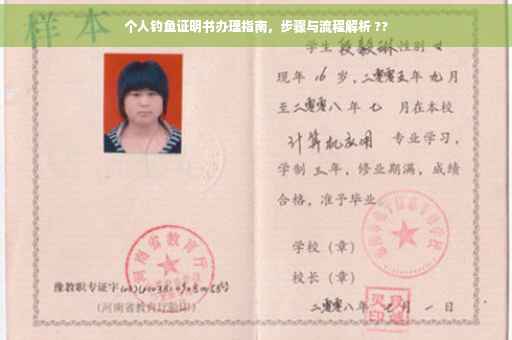 个人钓鱼证明书办理指南，步骤与流程解析 ??
样本
学生 段毅琳 性别 女
现年 16 岁，二零零五年 九 月
至二零零八 年 七 月在本校
计算机应用 专业学习，
学制 三 年，修业期满，成绩
合格，准予毕业。
学校（章）
校长（章）
二零零八年 七 月 一 日
河南省教育厅
豫教职专证字
（河南省教育厅验印）